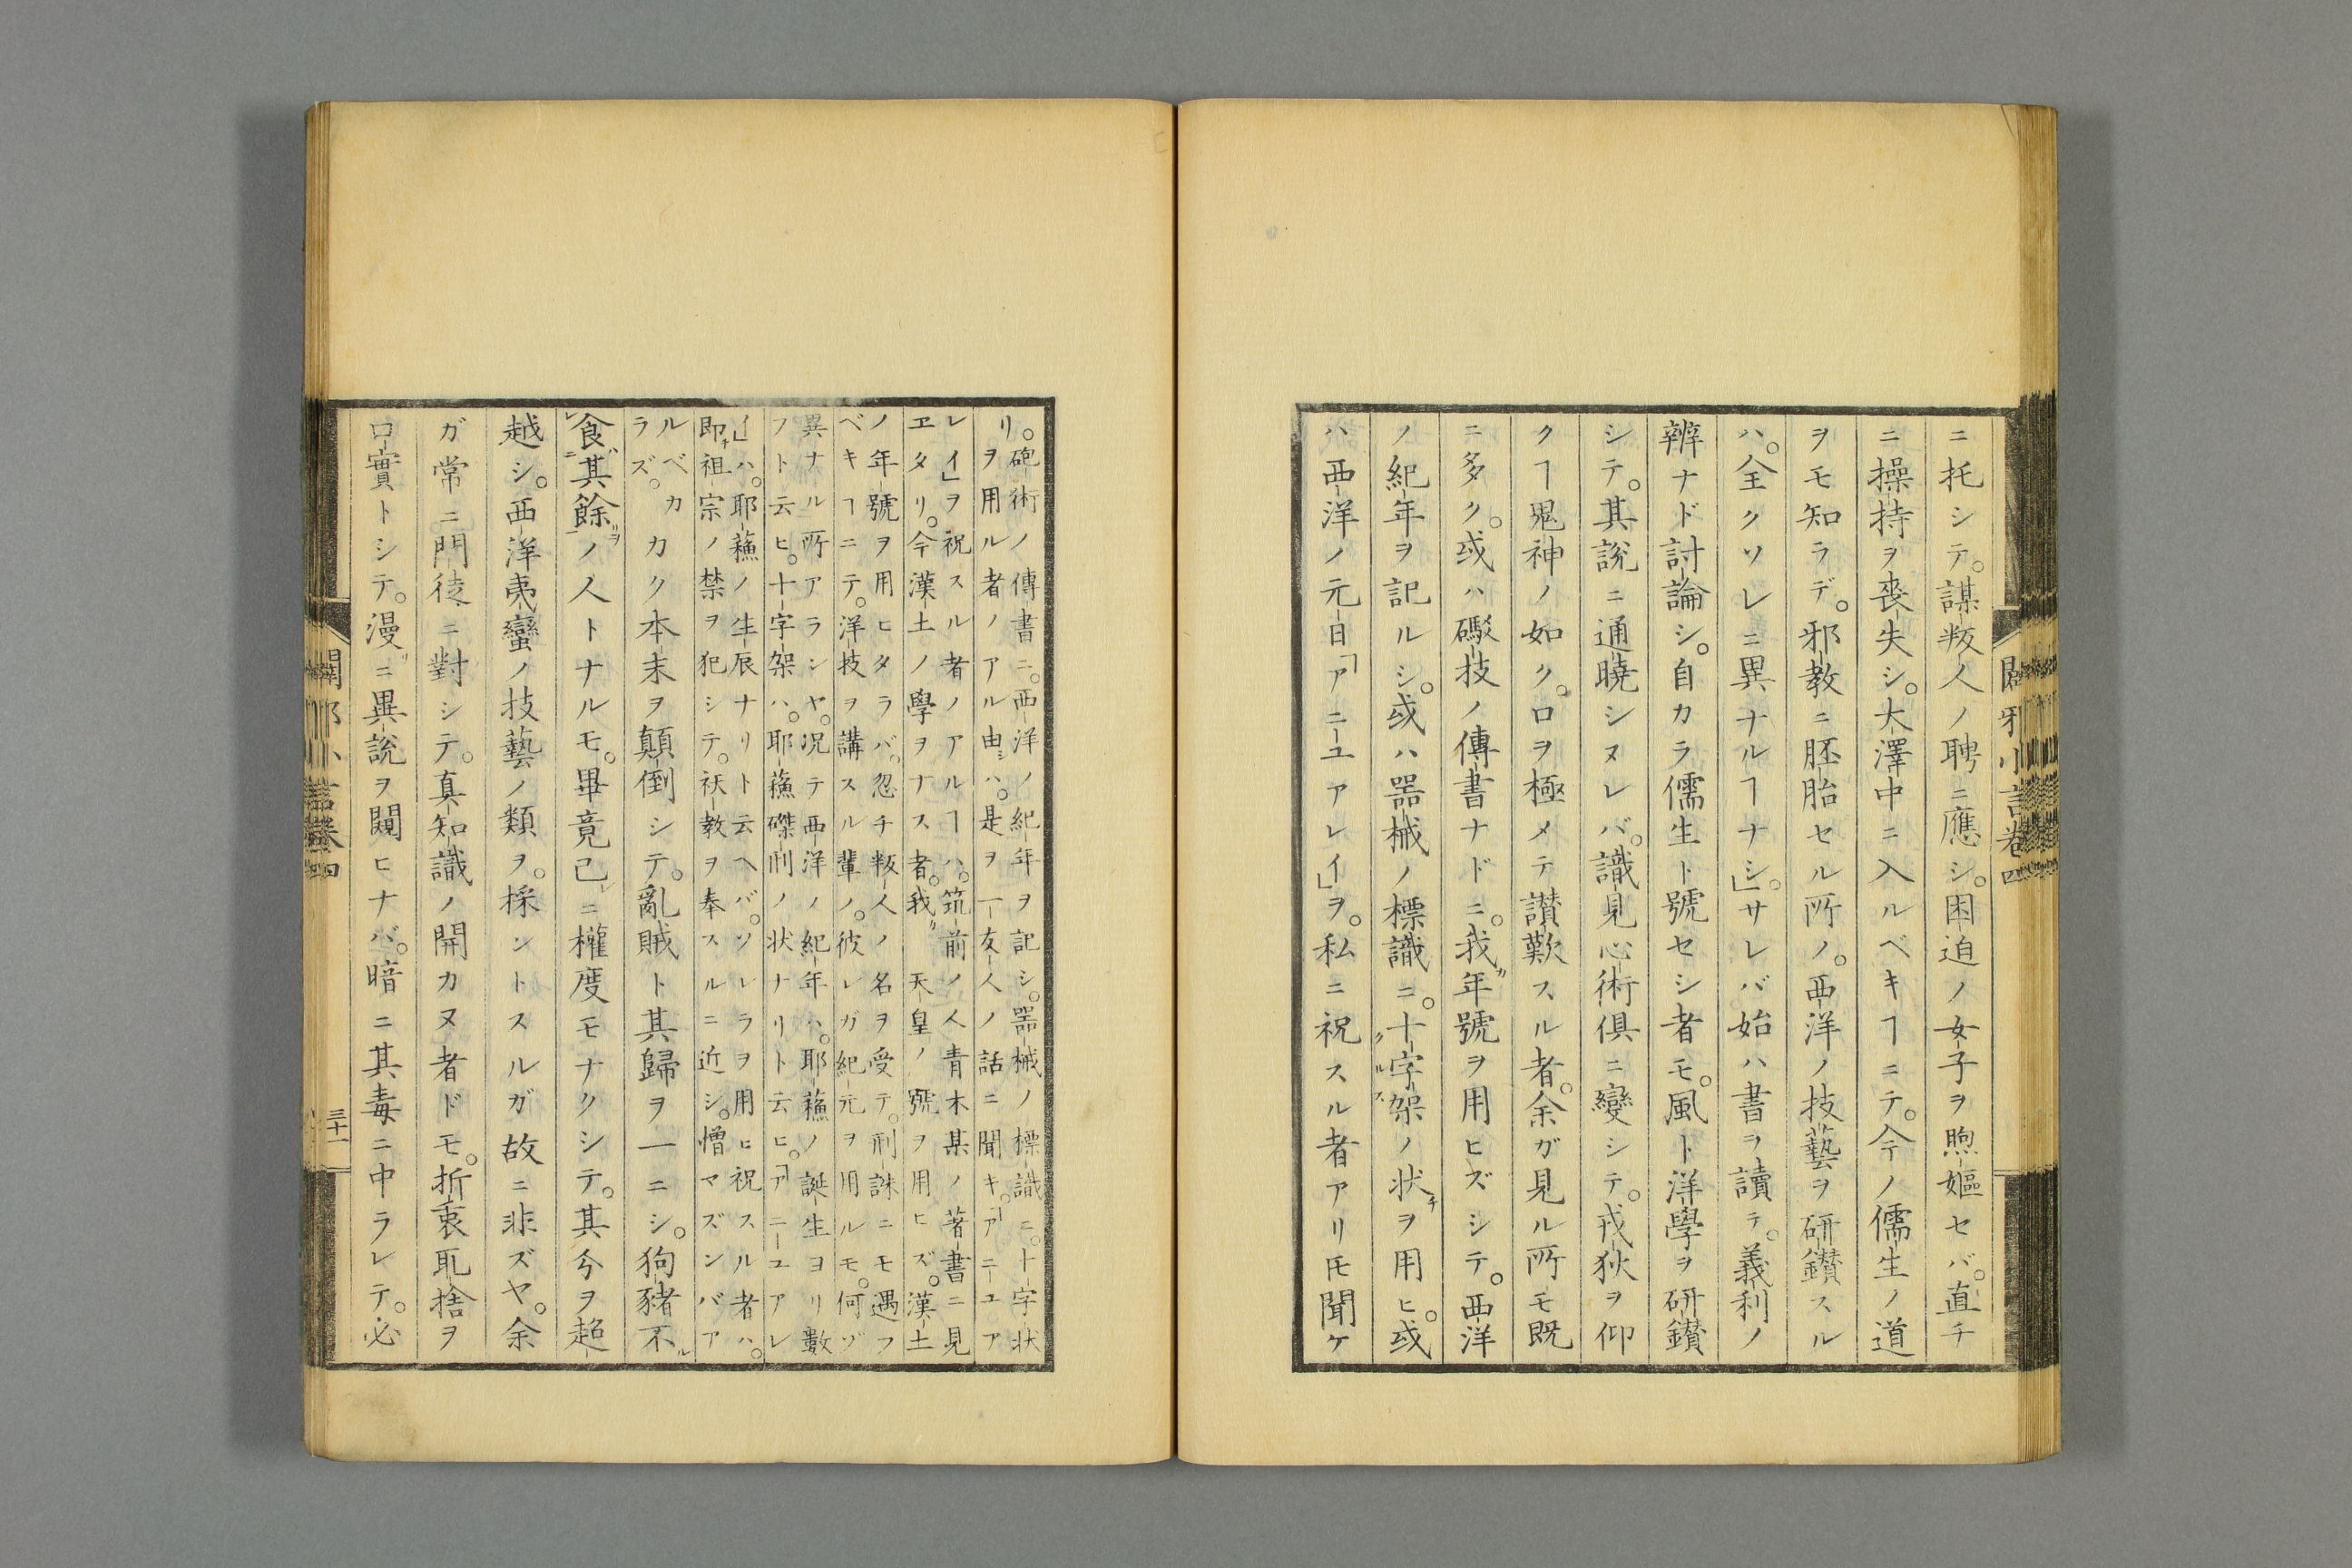 ニ托シテ。謀叛人ノ聘ニ應シ。困迫ノ女子ヲ煦嫗セバ。直チ
ニ操持ヲ喪失シ。大澤中ニ入ルベキヿニテ。今ノ儒生ノ道
ヲモ知ラデ。邪教ニ胚胎セル所ノ。西洋ノ技藝ヲ研鑚スル
ハ。全クソレニ異ナルヿナシ。」サレバ始ハ書ヲ讀テ。義利ノ
辨ナド討論シ。自カラ儒生ト號セシ者モ。風ト洋學ヲ研鑚
シテ。其説ニ通曉シヌレバ。識見心術俱ニ變シテ。戎狄ヲ仰
クヿ鬼神ノ如ク。口ヲ極メテ讃歎スル者。余ガ見ル所モ既
ニ多ク。或ハ礮技ノ傳書ナドニ。我ガ年號ヲ用ヒズシテ。西洋
ノ紀年ヲ記ルシ。或ハ器械ノ標識ニ。十字架クルスノ状チヲ用ヒ。或
ハ西洋ノ元日「アニーユアレイ」ヲ。私ニ祝スル者アリ𪜈聞ケ
闢邪小言卷四
リ。砲術ノ傳書ニ。西洋ノ紀年ヲ記シ。器械ノ標識ニ。十字状
ヲ用ル者ノアル由シハ。是ヲ一友人ノ話ニ聞キ。「アニーユア
レイ」ヲ祝スル者ノアルヿハ。筑前ノ人青木某ノ著書ニ見
ヱタリ。今漢土ノ學ヲナス者。我ガ 天皇ノ號ヲ用ヒズ。漢土
ノ年號ヲ用ヒタラバ。忽チ叛人ノ名ヲ受テ。刑誅ニモ遇フ
ベキヿニテ。洋技ヲ講スル輩ノ。彼レガ紀元ヲ用ルモ。何ゾ
異ナル所アラシヤ。况テ西洋ノ紀年ハ。耶蘓ノ誕生ヨリ數
フト云ヒ。十字架ハ。耶蘓磔刑ノ状ナリト云ヒ。「アニーユアレ
イ」ハ。耶蘓ノ生辰ナリト云ヘバ。ソレラヲ用ヒ祝スル者ハ。
即チ祖宗ノ禁ヲ犯シテ。祅教ヲ奉スルニ近シ。憎マズンバア
ルベカ
ラズ。 カク本末ヲ顛倒シテ。亂賊ト其歸ヲ一ニシ。狗豬不ル
食ハ其餘ヲノ人トナルモ。畢竟己レニ權度モナクシテ。其分ヲ超
越シ。西洋夷蠻ノ技藝ノ類ヲ。採ントスルガ故ニ非ズヤ。余
ガ常ニ門徒ニ對シテ。真知識ノ開カヌ者ドモ。折衷取捨ヲ
口實トシテ。漫リニ異説ヲ闚ヒナバ。暗ニ其毒ニ中ラレテ。必
闢邪小言卷四
三十一